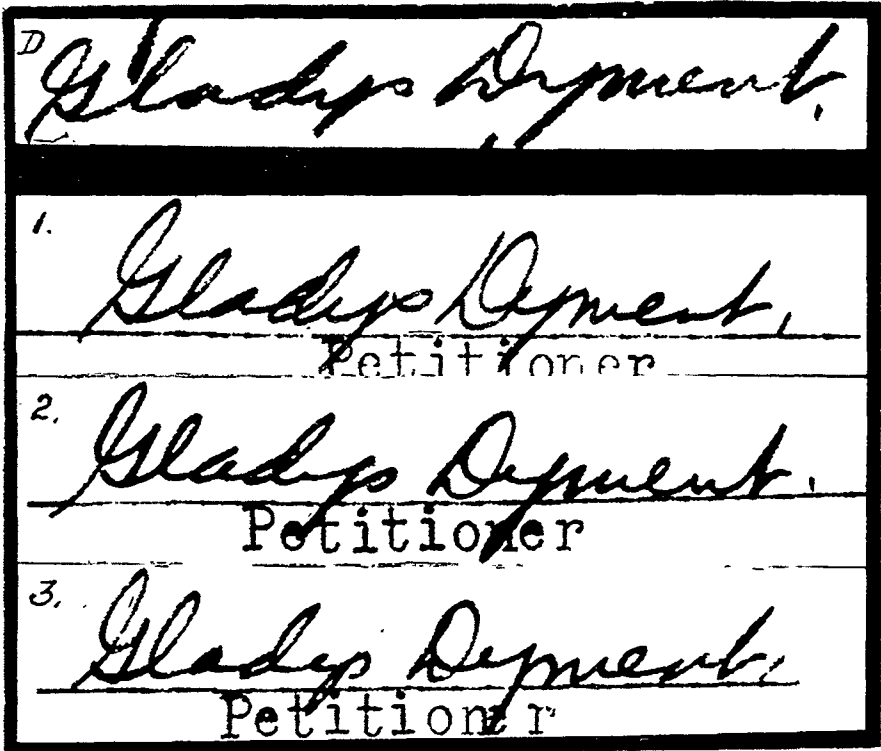 D
Gladys Dyment.
1.
Gladys Dyment,
Petitioner
2.
Gladys Dyment.
Petitioner
3.
Gladys Dyment,
Petitioner